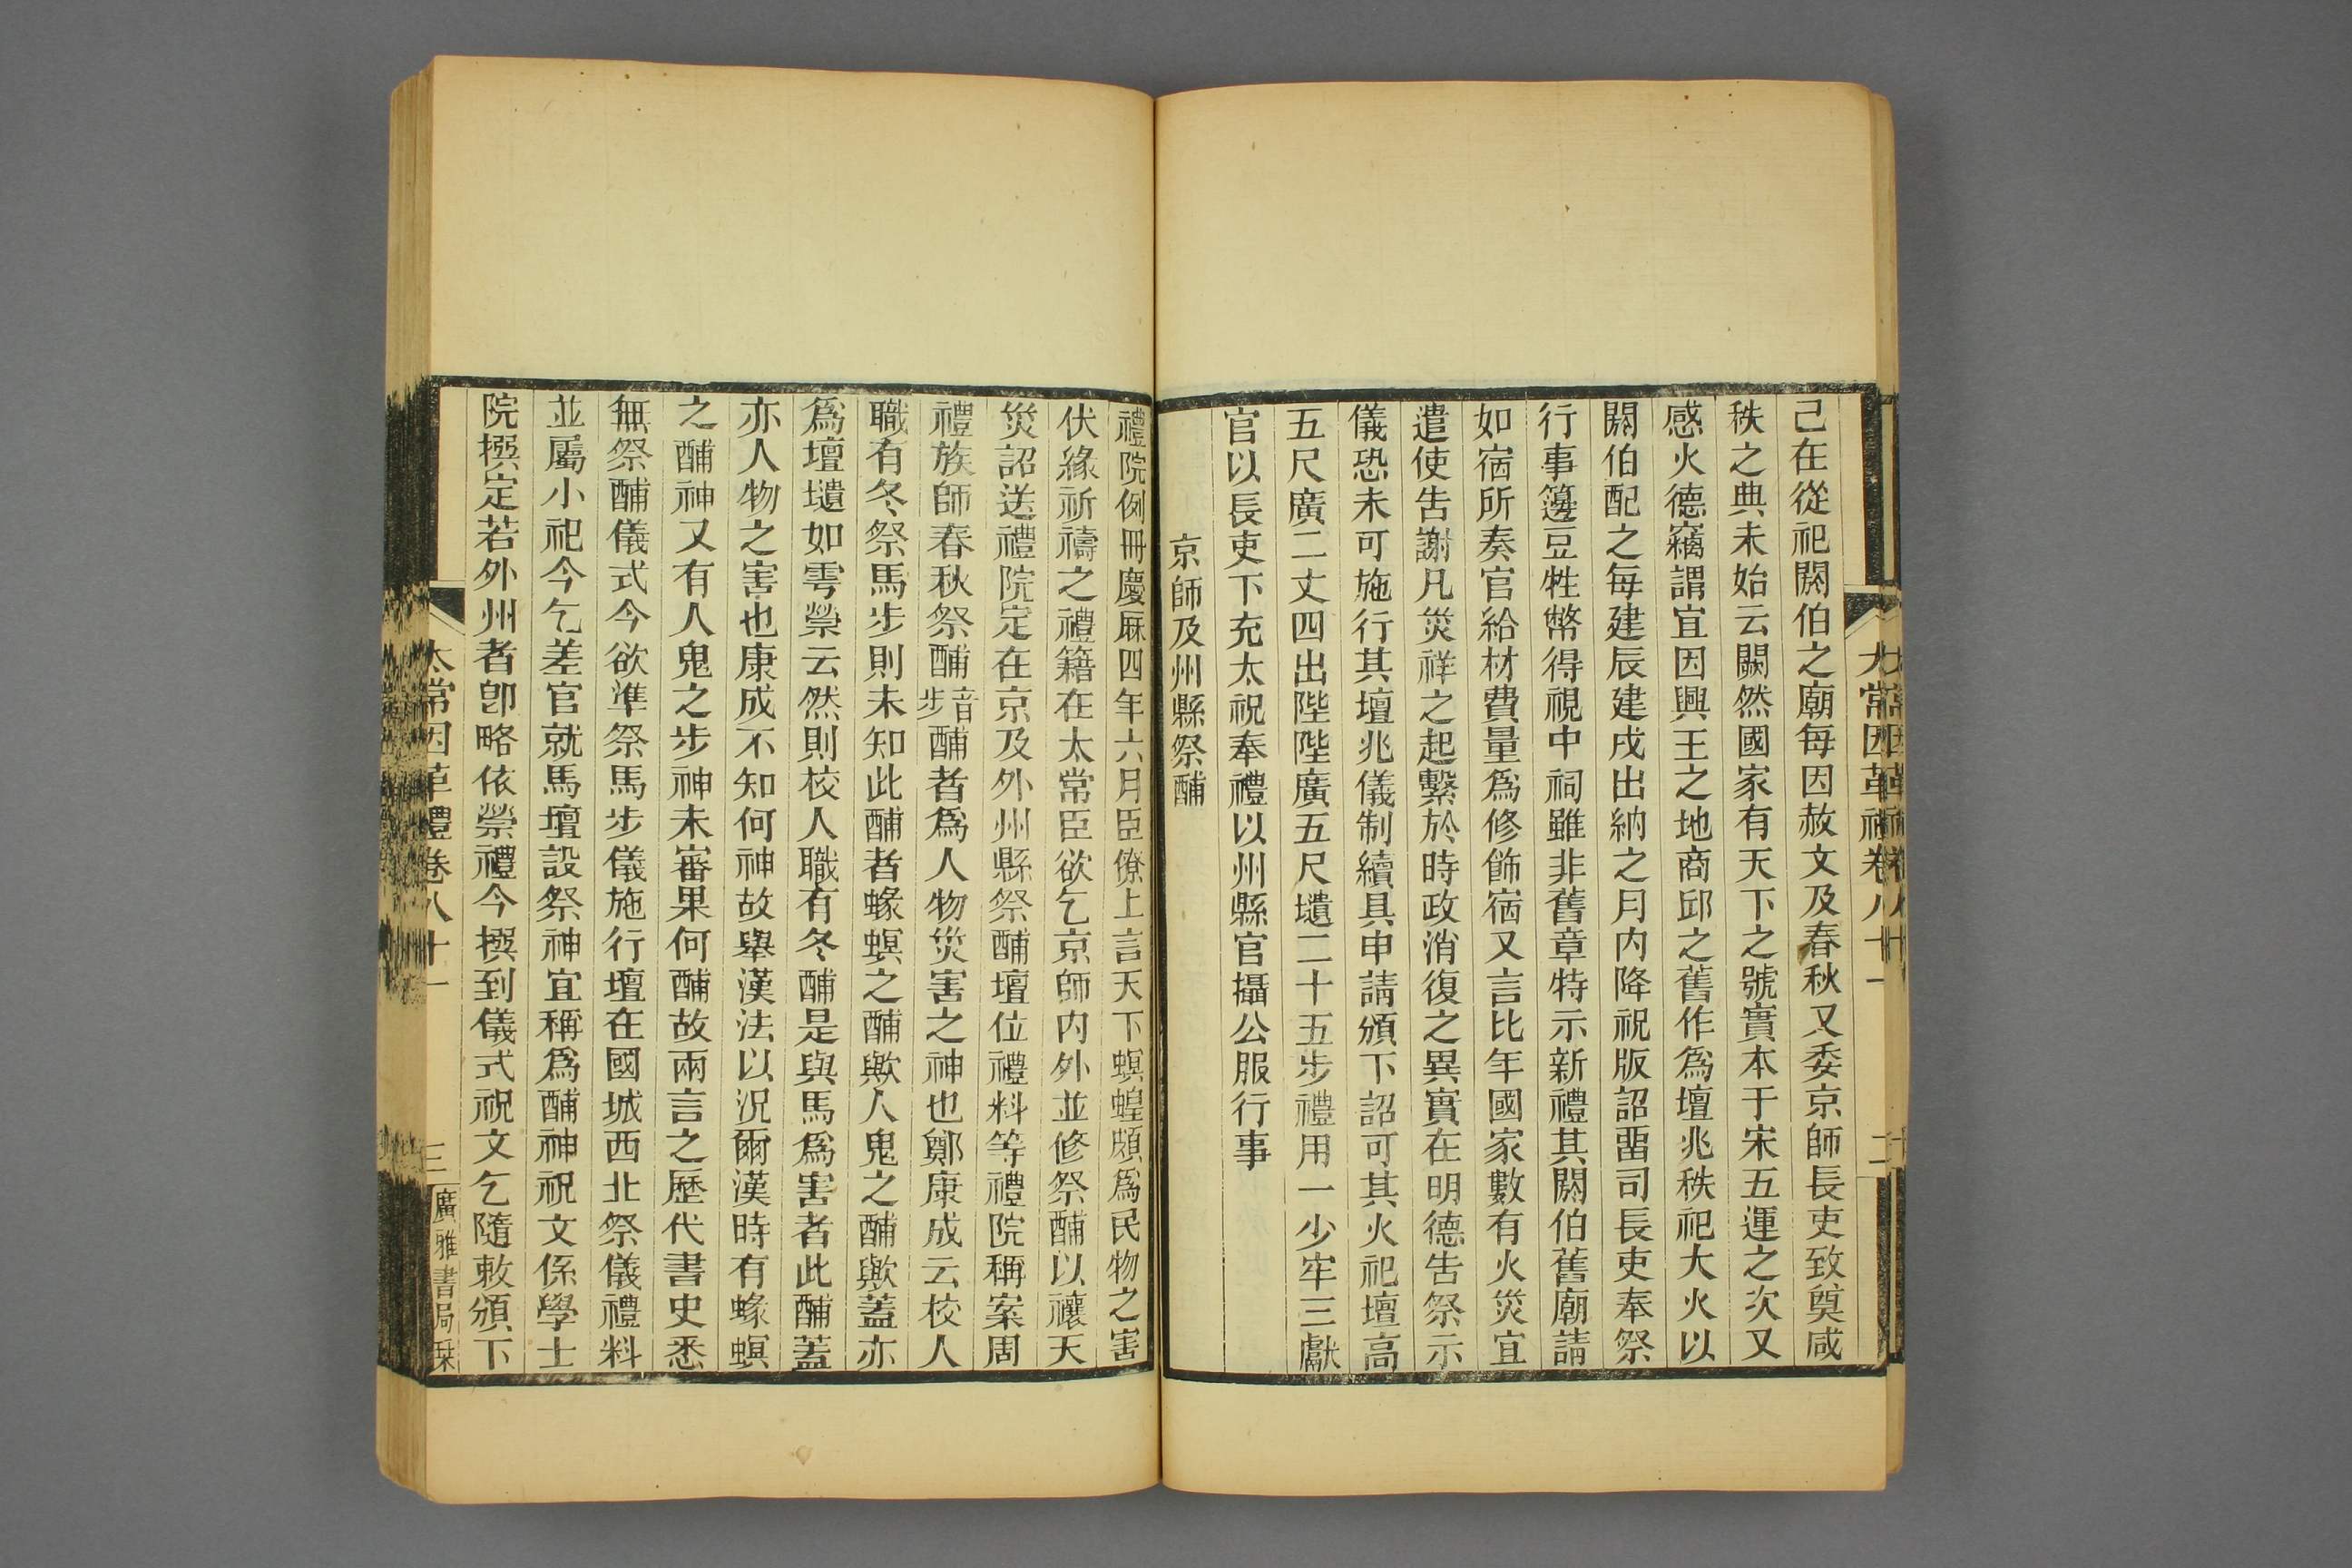 己在從祀閼伯之廟每因赦文及春秋又委京師長吏致奠咸
秩之典未始云闕然國家有天下之號實本于宋五運之次又
感火德竊謂宜因興王之地商邱之舊作爲壇兆秩祀大火以
閼伯配之每建辰建戌出納之月內降祝版詔畱司長吏奉祭
行事籩豆牲幣得視中祠雖非舊章特示新禮其閼伯舊廟請
如宿所奏官給材費量爲修飾宿又言比年國家數有火災宜
遣使告謝凡災祥之起繫於時政消復之異實在明德告祭示
儀恐未可施行其壇兆儀制續具申請頒下詔可其火祀壇高
五尺廣二丈四出陛陛廣五尺壝二十五步禮用一少牢三獻
官以長吏下充太祝奉禮以州縣官攝公服行事
京師及州縣祭酺
禮院例冊慶厤四年六月臣僚上言天下螟蝗頗爲民物之害
伏緣祈禱之禮籍在太常臣欲乞京師內外並修祭酺以禳天
災詔送禮院定在京及外州縣祭酺壇位禮料等禮院稱案周
禮族師春秋祭酺音步酺者爲人物災害之神也鄭康成云校人
職有冬祭馬步則未知此酺者蝝螟之酺歟人鬼之酺歟蓋亦
爲壇壝如雩禜云然則校人職有冬酺是與馬爲害者此酺蓋
亦人物之害也康成不知何神故舉漢法以況爾漢時有蝝螟
之酺神又有人鬼之步神未審果何酺故兩言之歷代書史悉
無祭酺儀式今欲準祭馬步儀施行壇在國城西北祭儀禮料
並屬小祀今乞差官就馬壇設祭神宜稱爲酺神祝文係學士
院撰定若外州者卽略依禜禮今撰到儀式祝文乞隨敕頒下
太常因革禮卷八十一
三
廣雅書局栞